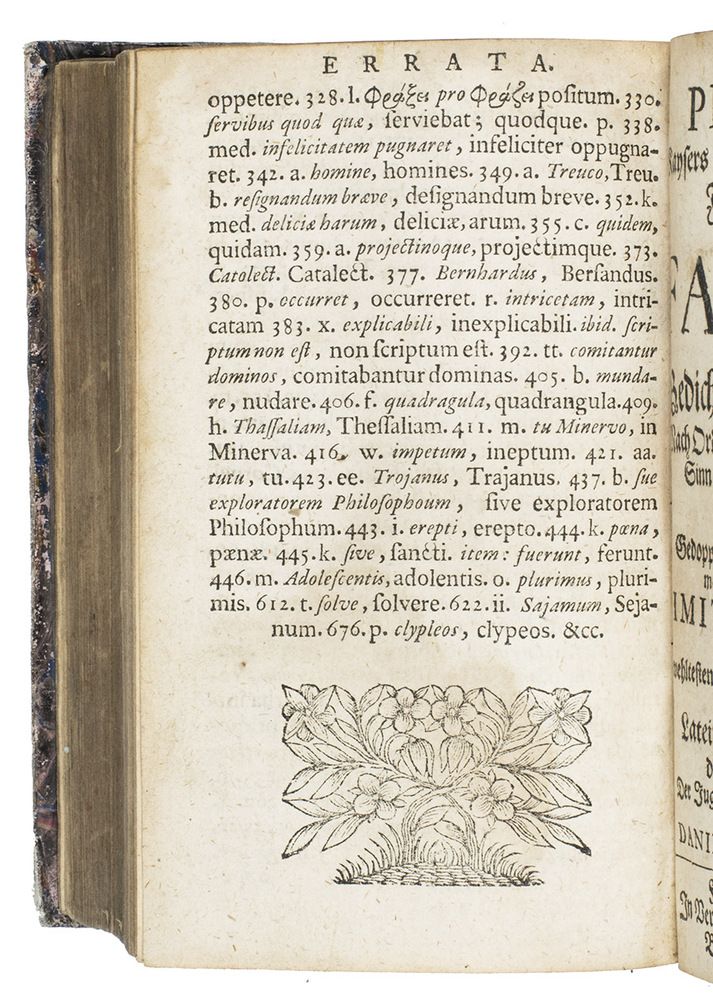 ERRATA.
oppetere. 328. l. Φράξει pro Φράζει poſitum. 330.
ſervibus quod quæ, ſerviebat; quodque. p. 338.
med. infelicitatem pugnaret, infeliciter oppugna-
ret. 342. a. homine, homines. 349. a. Treuco, Treu.
b. reſignandum bræve, deſignandum breve. 352. k.
med. deliciæ harum, deliciæ, arum. 355. c. quidem,
quidam. 359. a. projectinoque, projectimque. 373.
Catolect. Catalect. 377. Bernhardus, Berſandus.
380. p. occurret, occurreret. r. intricetam, intri-
catam 383. x. explicabili, inexplicabili. ibid. ſcri-
ptum non eſt, non ſcriptum eſt. 392. tt. comitantur
dominos, comitabantur dominas. 405. b. munda-
re, nudare. 406. f. quadragula, quadrangula. 409.
h. Thaſſaliam, Theſſaliam. 411. m. tu Minervo, in
Minerva. 416. w. impetum, ineptum. 421. aa.
tutu, tu. 423. ee. Trojanus, Trajanus. 437. b. ſue
exploratorem Philoſophoum, ſive exploratorem
Philoſophum. 443. i. erepti, erepto. 444. k. pæna,
pænæ. 445. k. ſive, ſancti. item: fuerunt, ferunt.
446. m. Adoleſcentis, adolentis. o. plurimus, pluri-
mis. 612. t. ſolve, ſolvere. 622. ii. Sajamum, Seja-
num. 676. p. clypleos, clypeos. &cc.
Nach
Sinn
Latei
Der Jug
DANI